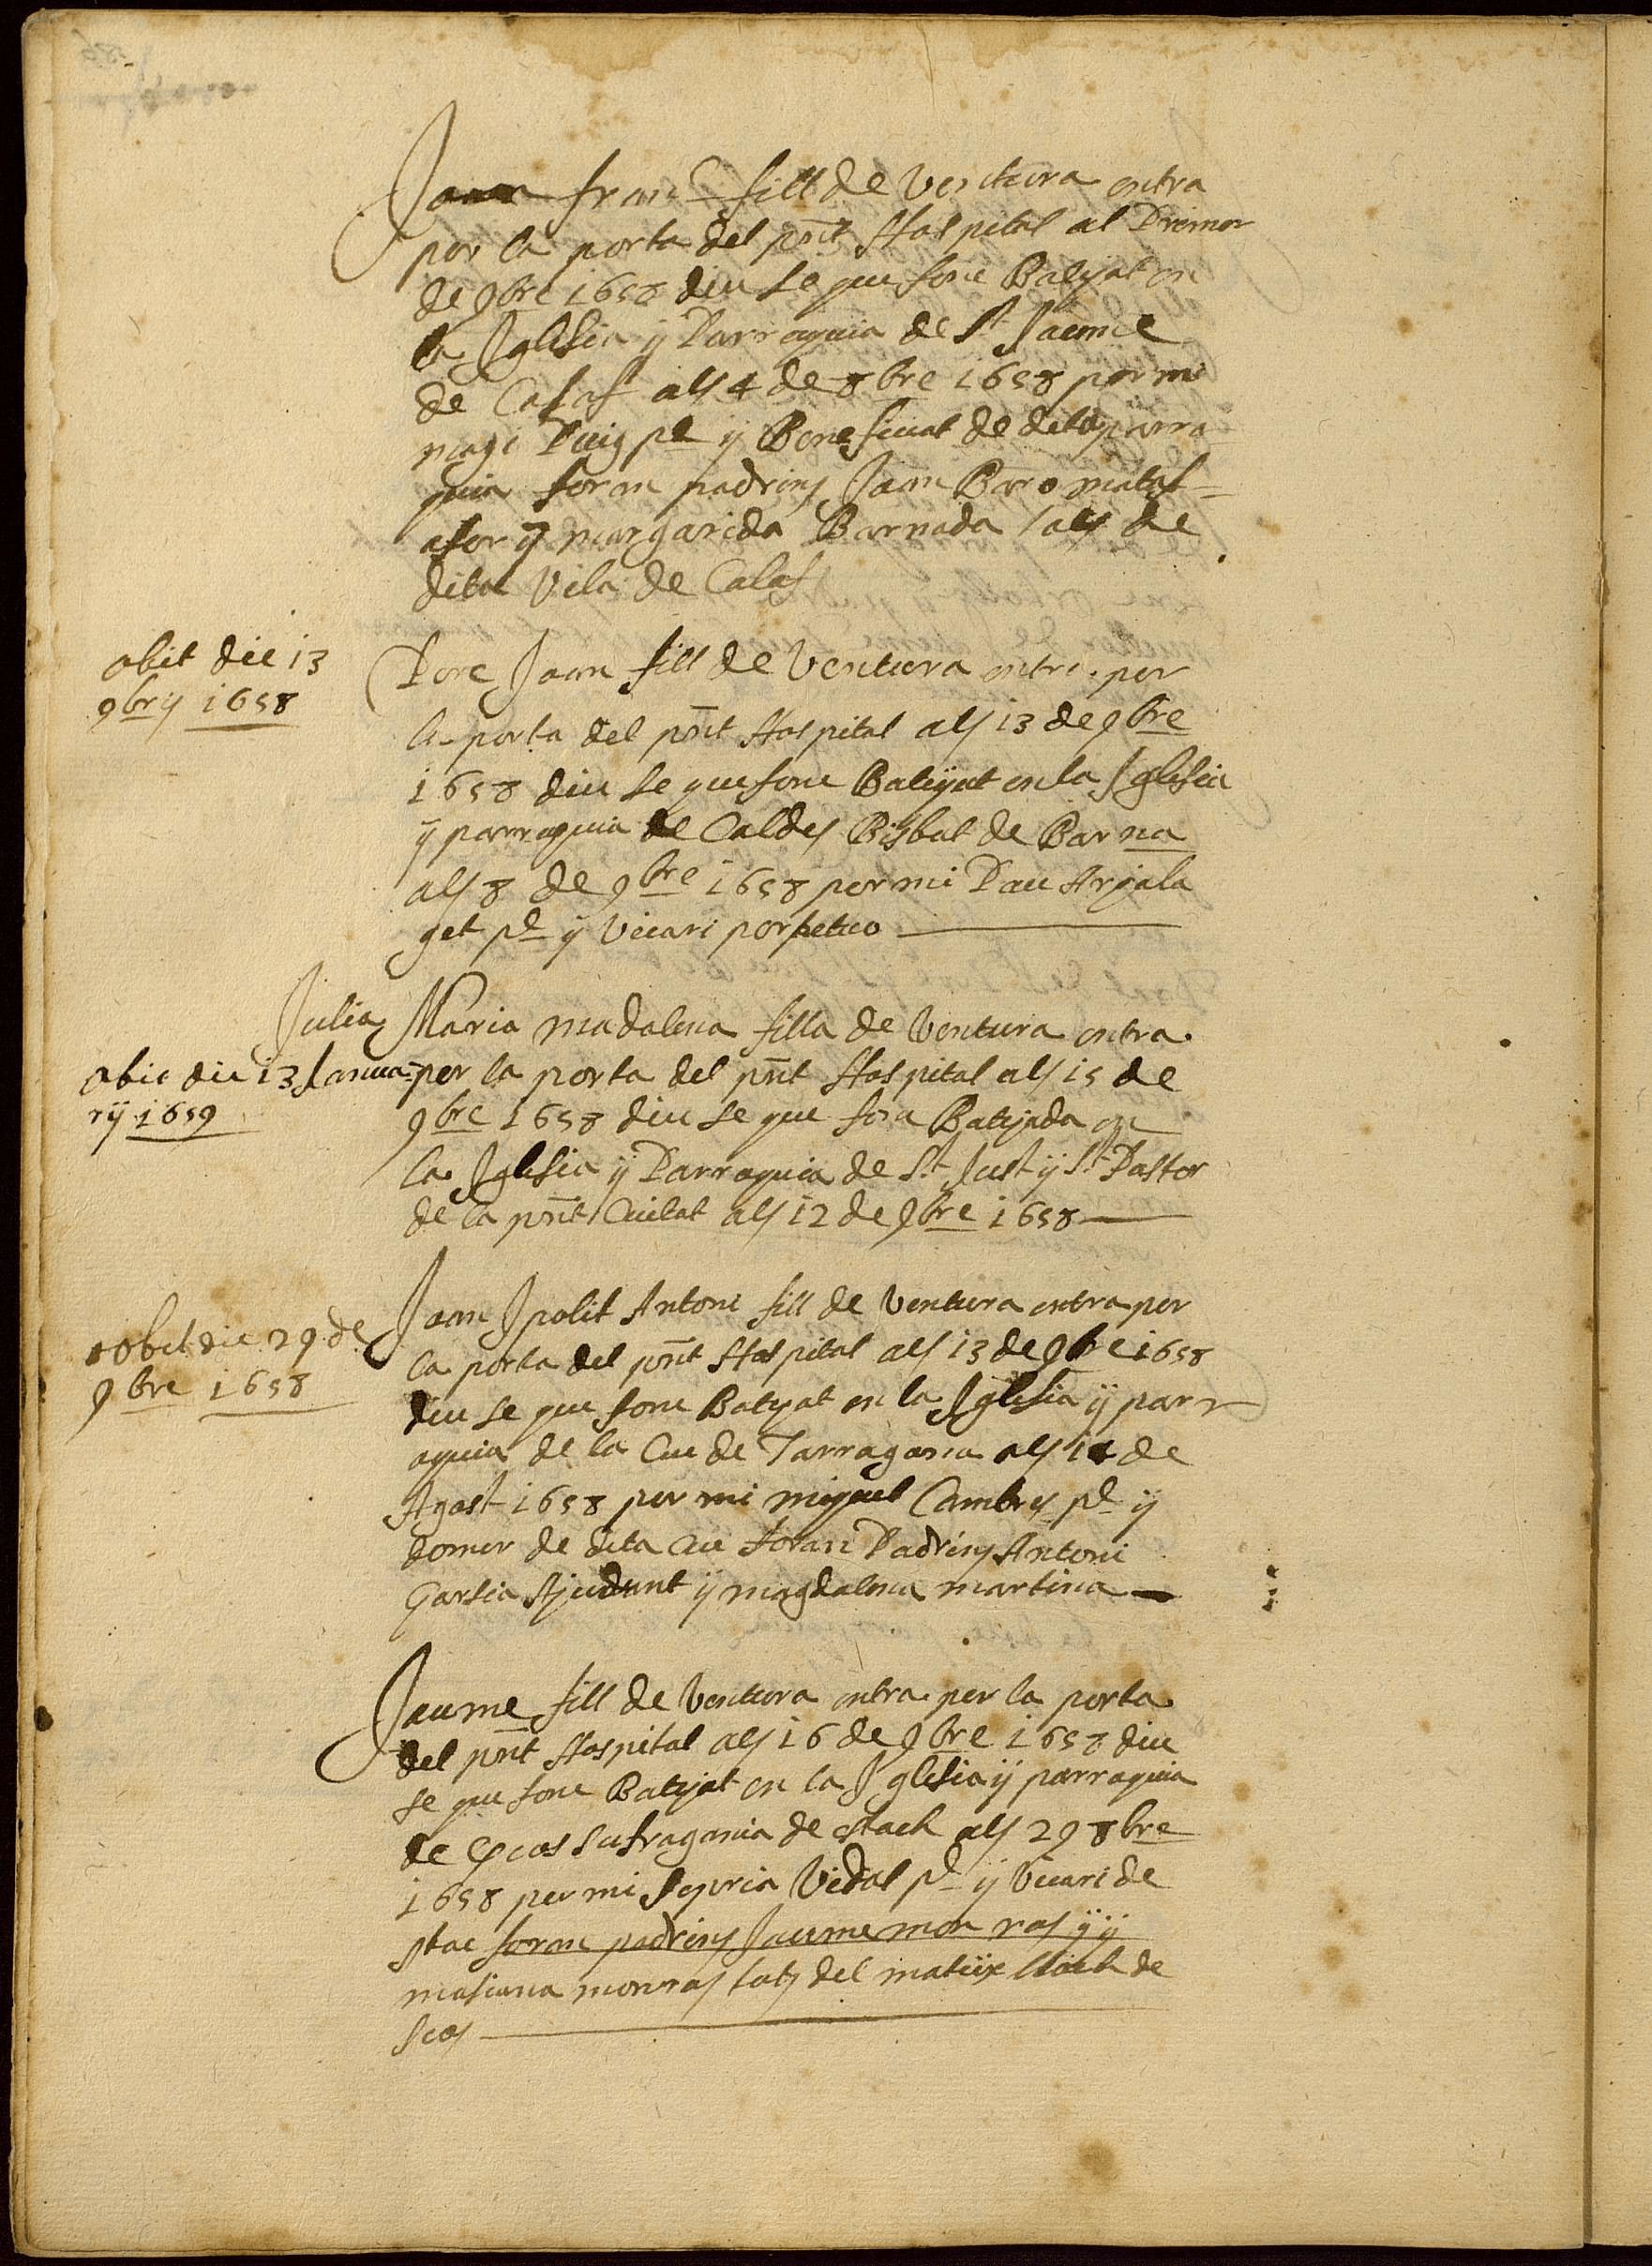 Joan franc fill de Ventura entra
per la porta del pnt Hospital al Primer
de 9bre 1658 diu se que fonc Batejat en
la Jglesia ÿ Parroquia de St Jaume
de Calaf als 4 de 8bre 1658 per mi
magi Puig pe ÿ Beneficiat de dita parro
quia foran padrins Joan Baro matal-
afer ÿ margarida Barnada tots de
dita Vila de Calaf
obit die 13
9bris 1658
Pere Joan fill de Ventura entra per
la porta del pnt Hospital als 13 de 9bre
1658 diu se que fonc Batejat en la Jglesia
ÿ parroquia de Caldes Bisbat de Barna
als 8 de 9bre 1658 per mi Pau Arjala
get pe ÿ Vicari perpetuo
Julia Maria madalena filla de Ventura entra
obit die 13 Janua-
rÿ 1659
per la porta del pnt Hospital als 15 de
9bre 1658 diu se que fora Batejada en
la Jglesia ÿ Parroquia de St Just ÿ St Pastor
de la pnt Ciutat als 12 de 9bre 1658
obit die 29 de
9bre 1658
Joan Jpolit Antoni fill de Ventura entra per
la porta del pnt Hospital als 13 de 9bre 1658
diu se que fonc Batejat en la Jglesia ÿ parr
oquia de la Cue de Tarragona als 14 de
Agost 1658 per mi miquel Cambrs pe ÿ
domer de dita Cue foran Padrins Antoni
Garsia Ajudant ÿ magdalena martina
Jaume fill de Ventura entra per la porta
del pnt Hospital als 16 de 9bre 1658 diu
se que fonc Batejat en la Jglesia ÿ parroquia
de escos sufragania de stach als 29 8bre
1658 per mi Vidal pe ÿ Vicari de
stac foran padrins Jaume mon ros ÿ ÿ
masiana monros tots del mateix lloch de
scos